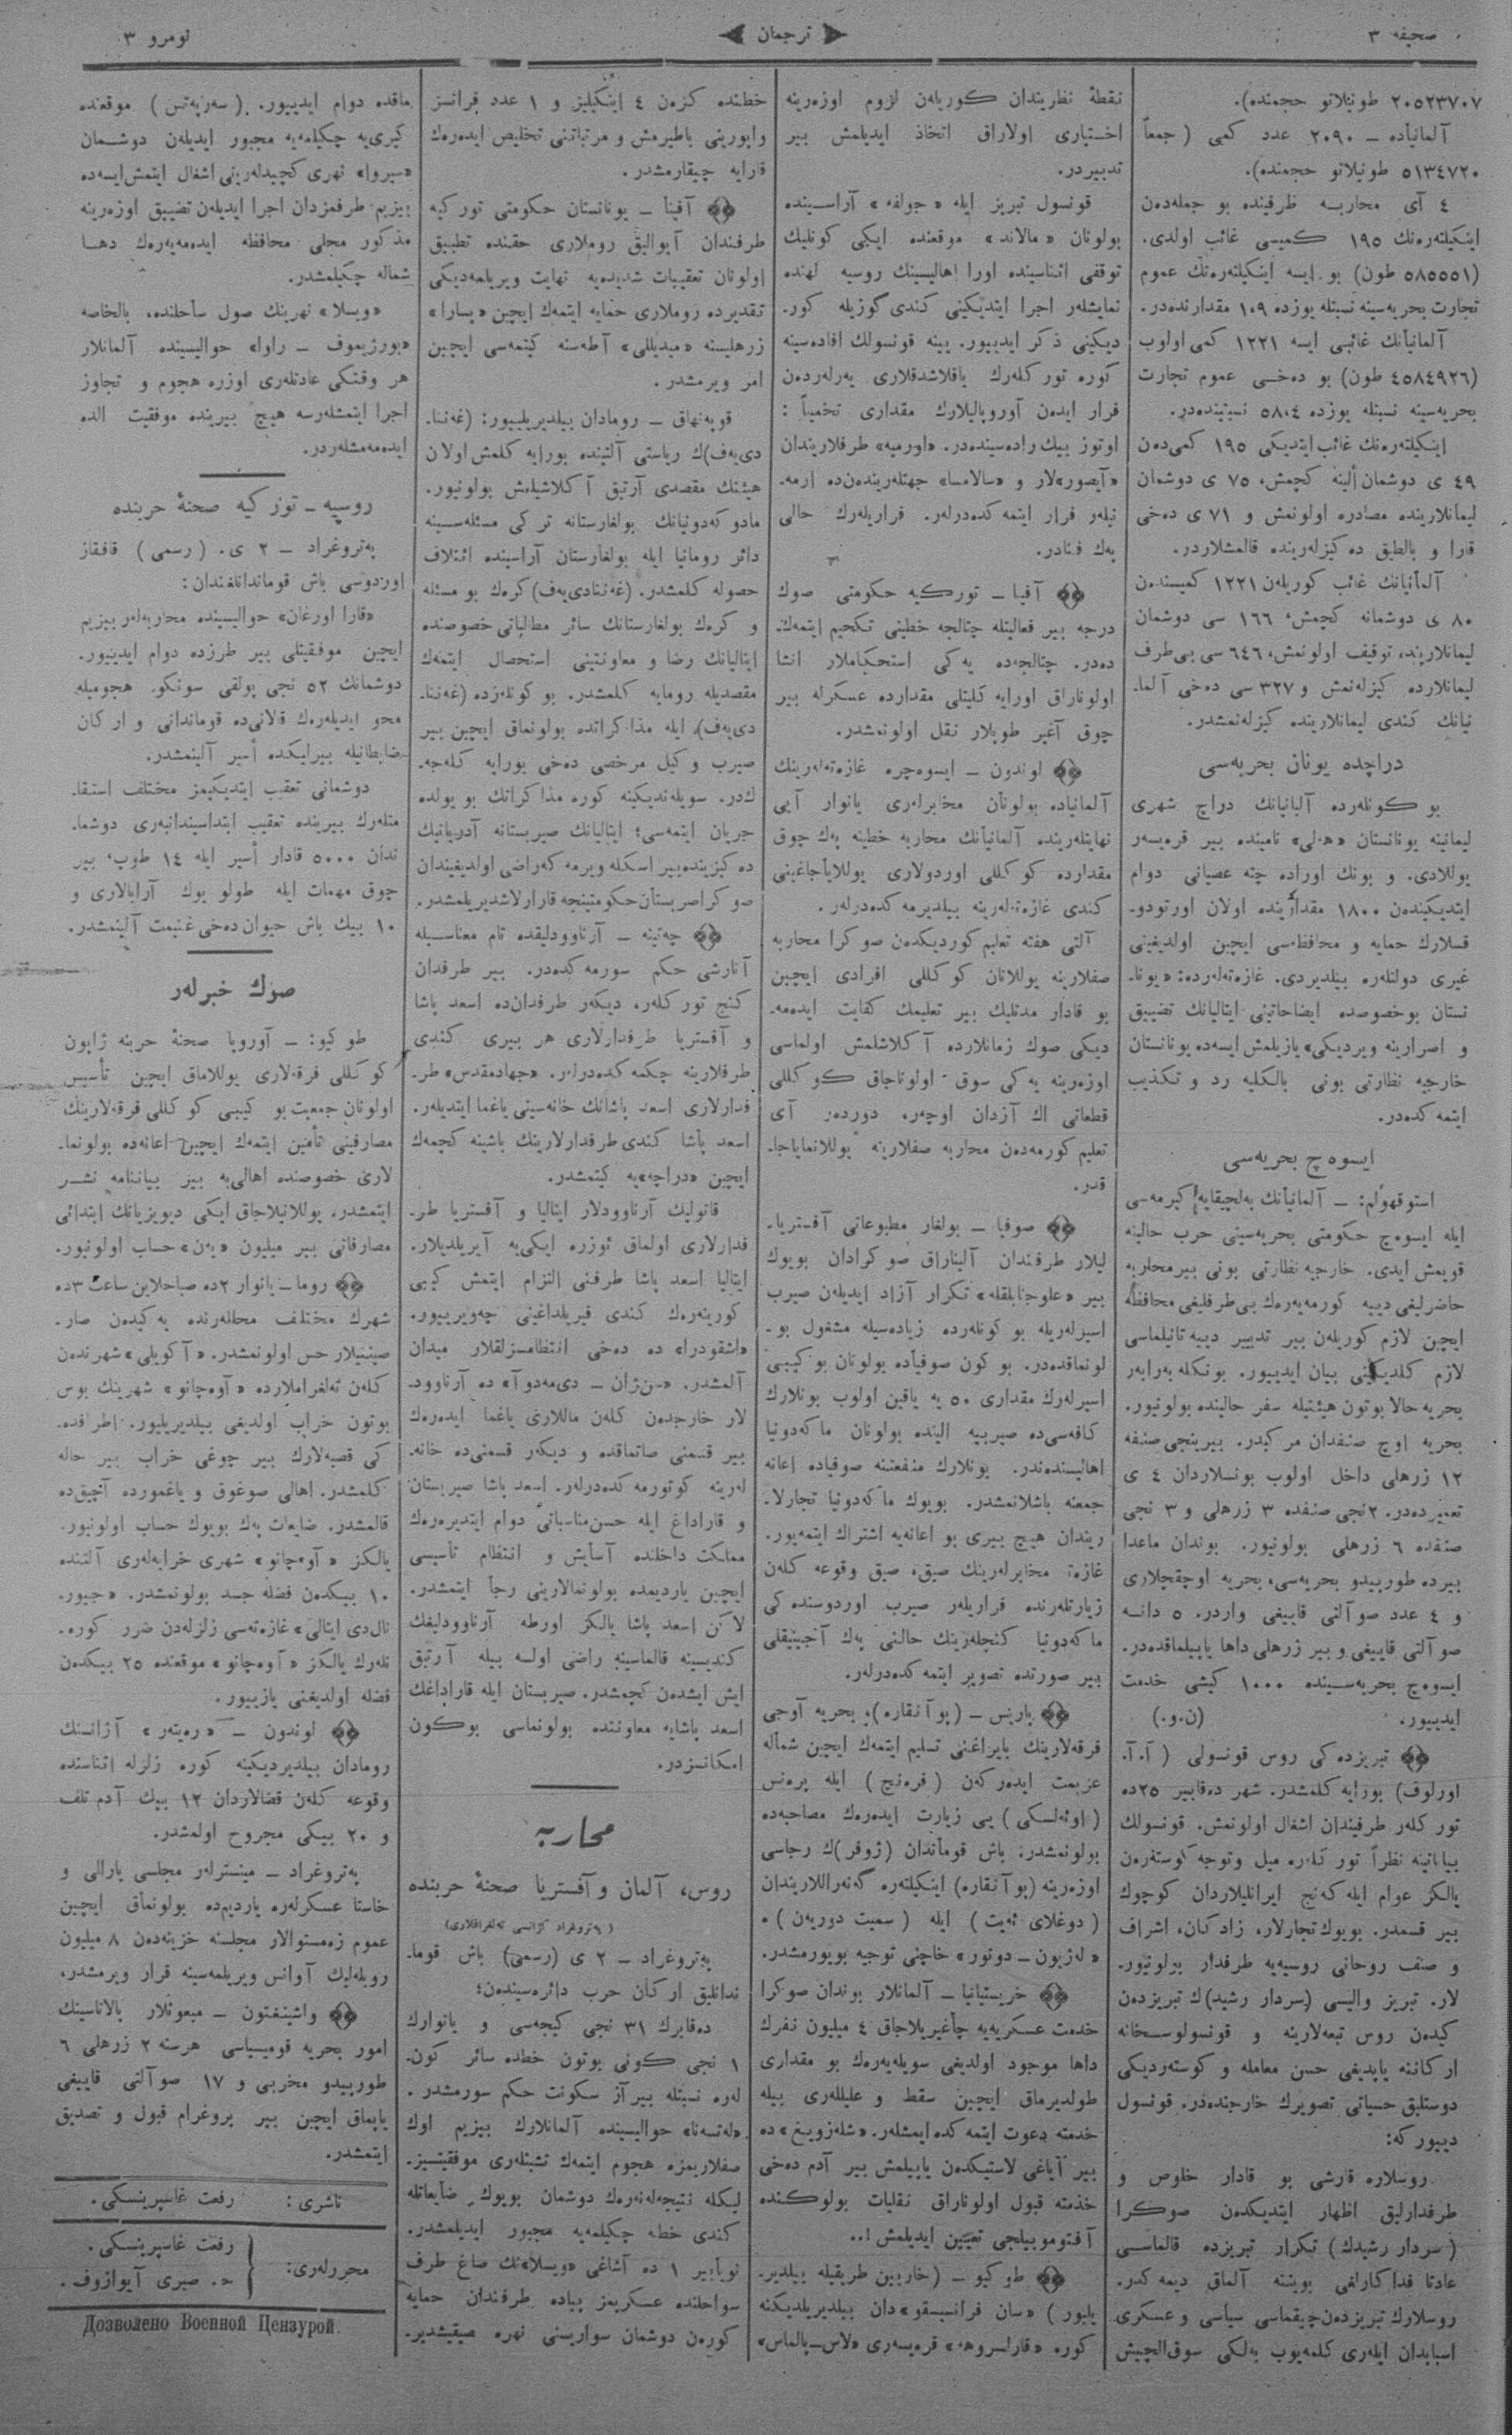 صحیفه ۳
ترجمان
نومرو ۳
۲۰۵۲۳۷۰۷ طونیلاتو حجمنده).
آلمانیاده – ۲۰۹۰ عدد كمی (جمعاً
۵۱۳٤۷۲۰ طونیلاتو حجمنده).
٤ آی محاربه ظرفینده بو جمله‌دن
اینكیلتره‌نك ۱۹۵ كمیسی غائب اولدی.
(۵۸۵۵۵۱ طون) بو ایسه اینكیلتره‌نك عموم
تجارت بحریه‌سینه نسبتله یوزده ۱،۰۹ مقدارنده‌در.
آلمانیانك غائبی ایسه ۱۲۲۱ كمی اولوب
(٤۵۸٤۹۲٦ طون) بو دخی عموم تجارت
بحریه‌سینه نسبتله یوزده ۵۸،٤ نسبتینده‌در.
اینكیلتره‌نك غائب ایتدیكی ۱۹۵ كمی‌دن
٤۹ ی دوشمان ألینه كچمش، ۷۵ ی دوشمان
لیمانلارینده مصادره اولونمش و ۷۱ ی دخی
قارا و بالطیق دكیزلرینده قالمشلاردر.
آلمانیانك غائب كوریلن ۱۲۲۱ كمیسندن
۸۰ ی دوشمانه كچمش، ۱٦٦ سی دوشمان
لیمانلارینده توقیف اولونمش، ٦٤٦ سی بی‌طرف
لیمانلارده كیزله‌نمش و ۳۲۷ سی دخی آلما-
نیانك كندی لیمانلارینده كیزله‌نمشدر.
دراچده یونان بحریه‌سی
بو كونلرده آلبانیانك دراچ شهری
لیمانینه یونانستان «هلی» نامینده بیر قره‌یسه‌ر
یوللادی. و بونك اوراده چته عصیانی دوام
ایتدیكیندن ۱۸۰۰ مقدارینده اولان اورتودو-
قسلارك حمایه و محافظه‌سی ایچین اولدیغینی
غیری دولتلره بیلدیردی. غازه‌ته‌لرده: «یونا-
نستان بوخصوصده ایضاحاتینی ایتالیانك تضییق
و اصرارینه ویردیكی» یازیلمش ایسه‌ده یونانستان
خارجیه نظارتی بونی بالكلیه رد و تكذیب
ایتمه كده‌در.
ایسوه‌چ بحریه‌سی
استوقهولم: – آلمانیانك بلجیقایه كیرمه‌سی
ایله ایسوه‌چ حكومتی بحریه‌سینی حرب حالینه
قویمش ایدی. خارجیه نظارتی بونی بیر محاربه
حاضرلیغی دییه كورمه‌یه‌رك بی‌طرفلیغی محافظه
ایچین لازم كوریلن بیر تدبیر دییه تانیلماسی
لازم كلدیكینی بیان ایدییور. بونكله برابر
بحریه حالا بوتون هیئتیله سفر حالینده بولونیور.
بحریه اوچ صنفدان مركبدر. بیرینجی صنفه
۱۲ زرهلی داخل اولوب بونلاردان ٤ ی
تعمیرده‌در. ۲نجی صنفده ۳ زرهلی و ۳ نجی
صنفده ٦ زرهلی بولونیور. بوندان ماعدا
بیرده طورپیدو بحریه‌سی، بحریه اوچقچلاری
و ٤ عدد صو آلتی قاییغی واردر. ۵ دانه
صو آلتی قاییغی و بیر زرهلی داها یاپیلماقده‌در.
ایسوه‌چ بحریه‌سینده ۱۰۰۰ كیشی خدمت
ایدییور. (ن.و.)
تبریزده كی روس قونسولی (آ.آ.
اورلوف) بورایه كلمشدر. شهر دقابیر ۲۵ ده
توركلر طرفیندان اشغال اولونمش. قونسولك
بیاناتینه نظراً توركلره میل و توجه كوستەرەن
یالكز عوام ایله كنج ایرانلیلاردان كوچوك
بیر قسمدر. بویوك تجارلار، زادكان، اشراف
و صنف روحانی روسیه‌یه طرفدار بولونیور-
لار. تبریز والیسی (سردار رشید)ك تبریزدن
كیدن روس تبعه‌لارینه و قونسولوسخانه
اركاننه یاپدیغی حسن معامله و كوستەردیكی
دوستلیق حسیاتی تصویرك خارجنده‌در. قونسول
دییور كه:
روسلاره قارشی بو قادار خلوص و
طرفدارلیق اظهار ایتدیكدن صوكرا
(سردار رشیدك) تكرار تبریزده قالماسی
عادتا فداكارلغی بویننه آلماق دیمه كدر.
روسلارك تبریزدن چیقماسی سیاسی و عسكری
اسبابدان ایلەری كلمه‌یوب بلكی سوق‌الجیش
نقطهٔ نظریندان كوریلن لزوم اوزەرینه
اختیاری اولاراق اتخاذ ایدیلمش بیر
تدبیردر.
قونسول تبریز ایله «جولفه» آراسینده
بولونان «مالاند» موقعنده ایكی كونلیك
توقفی اثناسینده اورا اهالیسینك روسیه لهنده
نمایشلر اجرا ایتدیكینی كندی گوزیله كور-
دیكینی ذكر ایدییور. یینه قونسولك افاده‌سینه
كوره توركلەرك یاقلاشدقلاری یرلردن
فرار ایدن آوروپالیلارك مقداری تخمیناً:
اوتوز بیك راده‌سینده‌در. «اورمیه» طرفلاریندان
«آیصور»لار و «سالامسا» جهتلریندن‌ده ارمه-
نیلر فرار ایتمه كده‌درلر. فراریلەرك حالی
پك فنادر.
آفینا – توركیه حكومتی صوك
درجه بیر فعالیتله چتالجه خطینی تحكیم ایتمه‌ك-
ده‌در. چتالجه‌ده یكی استحكاملار انشا
اولوناراق اورایه كلیتلی مقدارده عسكرله بیر
چوق آغیر طوپلار نقل اولونمشدر.
لوندون – ایسوه‌چره غازه‌ته‌لرینك
آلمانیاده بولونان مخابرلری یانوار آیی
نهایتلرینده آلمانیانك محاربه خطینه پك چوق
مقدارده كوكللی اوردولاری یوللایاجاغینی
كندی غازه‌ته‌لرینه بیلدیرمه كده‌درلر.
آلتی هفته تعلیم كوردیكدن صوكرا محاربه
صفلارینه یوللانان كوكللی افرادی ایچین
بو قادار مدتلیك بیر تعلیمك كفایت ایدەمه-
دیكی صوك زمانلارده آكلاشلمش اولماسی
اوزەرینه یكی سوق اولوناجاق كوكللی
قطعاتی اك آزدان اوچر، دوردر آی
تعلیم كورمه‌دن محاربه صفلارینه یوللانمایاجا-
قدر.
صوفیا – بولغار مطبوعاتی آفستریا-
لیلار طرفندان آلیناراق صوكرادان بویوك
بیر «علوجنابلقله» تكرار آزاد ایدیلن صیرب
اسیرلریله بو كونلرده زیاده‌سیله مشغول بو-
لونماقده‌در. بو كون صوفیاده بولونان بو كیبی
اسیرلەرك مقداری ۵۰ یه یاقین اولوب بونلارك
كافه‌سی‌ده صیربیه الینده بولونان ماكدونیا
اهالیسندندر. بونلارك منفعتنه صوفیاده اعانه
جمعنه باشلانمشدر. بویوك ماكدونیا تجارلا-
ریندان هیچ بیری بو اعانه‌یه اشتراك ایتمه‌یور.
غازه‌ته مخابرلرینك صیق، صیق وقوعه كلن
زیارتلرنده فراریلر صیرب اوردوسنده كی
ماكدونیا كنجلرینك حالنی پك آجینیقلی
بیر صورتده تصویر ایتمه كده‌درلر.
پاریس – (پوآنقاره)، بحریه آوجی
فرقه‌لارینك بایراغنی تسلیم ایتمك ایچین شماله
عزیمت ایدركن (فرەنچ) ایله پرنس
(اوئه‌لسكی) یی زیارت ایدەرك مصاحبه‌ده
بولونمشدر. باش قوماندان (ژوفر)ك رجاسی
اوزەرینه (پوآنقاره) اینكیلتره گنراللاریندان
(دوغلای ئه‌یت) ایله (سمیت دوریەن)،
«لەژیون – دونور» خاچنی توجیه بویورمشدر.
خریستیانیا – آلمانلار بوندان صوكرا
خدمت عسكریه‌یه چاغیریلاجاق ٤ میلیون نفرك
داها موجود اولدیغی سویله‌یەرك بو مقداری
طولدیرماق ایچین سقط و علیللری بیله
خدمته دعوت ایتمه كده ایمشلر. «شلەزویغ» ده
بیر آیاغی لاستیكدن یاپیلمش بیر آدم دخی
خدمته قبول اولوناراق نقلیات بولوكنده
آفتوموبیلجی تعیین ایدیلمش!..
طوكیو – (خاربین طریقیله بیلدیر-
یلیور) «سان فرانسیسقو»دان بیلدیریلدیكینه
كوره «قارلسروهه» قره‌یسه‌ری «لاس-پالماس»
خطنده كزن ٤ اینكیلیز و ۱ عدد فرانسز
واپورینی باطیرمش و مرتباتنی تخلیص ایدەرك
قارایه چیقارمشدر.
آفینا – یونانستان حكومتی توركیه
طرفندان آیوالیق روملاری حقنده تطبیق
اولونان تعقیبات شدیدەیه نهایت ویریلمه‌دیكی
تقدیرده روملاری حمایه ایتمك ایچین «پسارا»
زرهلیسنه «میدیللی» آطه‌سنه كیتمه‌سی ایچین
امر ویرمشدر.
قوپنهاق – رومادان بیلدیریلییور: (غەننا-
دی‌یف)ك ریاستی آلتینده بورایه كلمش اولان
هیئتك مقصدی آرتیق آكلاشیلمش بولونیور.
مادوكدونیانك بولغارستانه تركی مسئله‌سینه
دائر رومانیا ایله بولغارستان آراسینده ائتلاف
حصوله كلمشدر. (غەننادی‌یف) كرك بو مسئله
و كرك بولغارستانك سائر مطالباتی خصوصنده
ایتالیانك رضا و معاونتینی استحصال ایتمك
مقصدیله رومایه كلمشدر. بو كونلرده (غەننا-
دی‌یف) ایله مذاكراتده بولونماق ایچین بیر
صیرب وكیل مرخصی دخی بورایه كله‌جه-
كدر. سویلەندیكینه كوره مذاكراتك بو یولده
جریان ایتمه‌سی؛ ایتالیانك صیربستانه آدریاتیك
دكیزینده بیر اسكله ویرمه كه راضی اولدیغیندان
صوكرا صربستان حكومتینجه قارارلاشدیریلمشدر.
چتینه – آرناوودلیقده تام معناسیله
آنارشی حكم سورمه كده‌در. بیر طرفدان
كنج توركلر، دیكر طرفدان‌ده اسعد پاشا
و آفستریا طرفدارلاری هر بیری كندی
طرفلارینه چكمه كده‌درلر. «جهادمقدس» طر-
فدارلاری اسعد پاشانك خانه‌سینی یاغما ایتدیلر.
اسعد پاشا كندی طرفدارلارینك باشینه كچمك
ایچین «دراچه»یه كیتمشدر.
قاتولیك آرناوودلار ایتالیا و آفستریا طر-
فدارلاری اولماق ئوزره ایكی‌یه آیریلدیلار.
ایتالیا اسعد پاشا طرفنی التزام ایتمش كیبی
كورینەرك كندی فیریلداغینی چەویرییور.
«اشقودرا» ده دخی انتظامسزلقلار میدان
آلمشدر. «سن‌ژان – دی‌مەدوآ» ده آرناوود-
لار خارجدن كلن ماللاری یاغما ایدەرك
بیر قسمنی صاتماقده و دیكر قسمنی‌ده خانه-
لرینه كوتورمه كده‌درلر. اسعد پاشا صیربستان
و قاراداغ ایله حسن‌مناسباتی دوام ایتدیرەرك
مملكت داخلنده آسایش و انتظام تأسیسی
ایچین یاردیمده بولونمالارینی رجا ایتمشدر.
لاكن اسعد پاشا یالكز اورطه آرناوودلیغك
كندیسینه قالماسینه راضی اولسه بیله آرتیق
ایش ایشدن كچمشدر. صیربستان ایله قاراداغك
اسعد پاشایه معاوننده بولونماسی بوكون
امكانسزدر.
محاربه
روس، آلمان و آفستریا صحنهٔ حربنده
(پتروغراد آژانسی تلغرافلاری)
پتروغراد – ۲ ی (رسمی) باش قوما-
ندانلیق اركان حرب دائرەسیندن:
دقابرك ۳۱ نجی كیجه‌سی و یانوارك
۱ نجی كونی بوتون خطده سائر كون-
لره نسبتله بیر آز سكونت حكم سورمشدر.
«لەتسەنا» حوالیسینده آلمانلارك بیزیم اوك
صفلاریمزه هجوم ایتمك تشبثلری موفقیتسیز-
لیكله نتیجه‌لەنەرك دوشمان بویوك ضایعاتله
كندی خطه چكیلمه‌یه مجبور ایدیلمشدر.
نویابیر ۱ ده آشاغی «ویسلا»نك صاغ طرف
سواحلنده عسكریمز پیاده طرفندان حمایه
كورن دوشمان سواریسنی نهره صیقیشدیر-
ماقده دوام ایدییور. (سەرپەتس) موقعنده
كیری‌یه چكیلمه‌یه مجبور ایدیلن دوشمان
«سیروا» نهری كچیدلرینی اشغال ایتمش‌ایسه‌ده
بیزیم طرفمزدان اجرا ایدیلن تضییق اوزەرینه
مذكور محلی محافظه ایدەمه‌یەرك دها
شماله چكیلمشدر.
«ویسلا» نهرینك صول ساحلنده، بالخاصه
«بورژیموف – راوا» حوالیسینده آلمانلار
هر وقتكی عادتلری اوزره هجوم و تجاوز
اجرا ایتمشلرسه هیچ بیرینده موفقیت الده
ایدەمه‌مشلردر.
روسیه – توركیه صحنهٔ حربنده
پتروغراد – ۲ ی. (رسمی) قافقاز
اوردوسی باش قوماندانلغندان:
«قارا اورغان» حوالیسینده محاربه‌لر بیزیم
ایچین موفقیتلی بیر طرزده دوام ایدییور.
دوشمانك ۵۲ نجی پولقی سونكو هجومیله
محو ایدیلەرك قالانی‌ده قوماندانی و اركان
ضابطانیله بیرلیكده أسیر آلینمشدر.
دوشمانی تعقیب ایتدیكیمز مختلف استقا-
متلرك بیرینده تعقیب ابتداسیندانبری دوشما-
ندان ۵۰۰۰ قادار أسیر ایله ۱٤ طوپ، بیر
چوق مهمات ایله طولو یوك آرابالاری و
۱۰ بیك باش حیوان دخی غنیمت آلینمشدر.
صوك خبرلر
طوكیو: – آوروپا صحنهٔ حربنه ژاپون
كوكللی فرقه‌لاری یوللاماق ایچین تأسیس
اولونان جمعیت بو كیبی كوكللی فرقه‌لارینك
مصارفینی تأمین ایتمك ایچین اعانه‌ده بولونما-
لاری خصوصنده اهالی‌یه بیر بیاننامه نشر
ایتمشدر. یوللانیلاجاق ایكی دیویزیانك ابتدائی
مصارفاتی بیر میلیون «یەن» حساب اولونیور.
روما – یانوار ۲ ده صباحلاین ساعت ۳ ده
شهرك مختلف محللرنده یكیدن صار-
صینتیلار حس اولونمشدر. «آكویلی» شهرندن
كلن تلغراملارده «آوەچانو» شهرینك بوس
بوتون خراب اولدیغی بیلدیریلیور. اطرافده-
كی قصبه‌لارك بیر چوغی خراب بیر حاله
كلمشدر. اهالی صوغوق و یاغمورده آچیق‌ده
قالمشدر. ضایعات پك بویوك حساب اولونیور.
یالكز «آوەچانو» شهری خرابه‌لری آلتنده
۱۰ بیكدن فضله جسد بولونمشدر. «جیور-
نال‌دی ایتالی» غازه‌ته‌سی زلزله‌دن ضرر كوره-
نلرك یالكز «آوەچانو» موقعنده ۲۵ بیكدن
فضله اولدیغنی یازییور.
لوندون – «رەیتەر» آژانسنك
رومادان بیلدیردیكینه كوره زلزله اثناسنده
وقوعه كلن قضالاردان ۱۲ بیك آدم تلف
و ۲۰ بیكی مجروح اولمشدر.
پتروغراد – مینسترلر مجلسی یارالی و
خاستا عسكرلره یاردیم‌ده بولونماق ایچین
عموم زەمستوالار مجلسنه خزینه‌دن ۸ میلیون
روبله‌لیك آوانس ویریلمه‌سینه قرار ویرمشدر.
واشینغتون – مبعوثلار پالاتاسینك
امور بحریه قومیسیاسی هرسنه ۲ زرهلی ٦
طورپیدو مخربی و ۱۷ صو آلتی قاییغی
یاپماق ایچین بیر پروغرام قبول و تصدیق
ایتمشدر.
ناشری: رفعت غاسپرینسكی.
محررلری: رفعت غاسپرینسكی.
ح. صبری آیوازوف.
Дозволено Военной Цензурой.